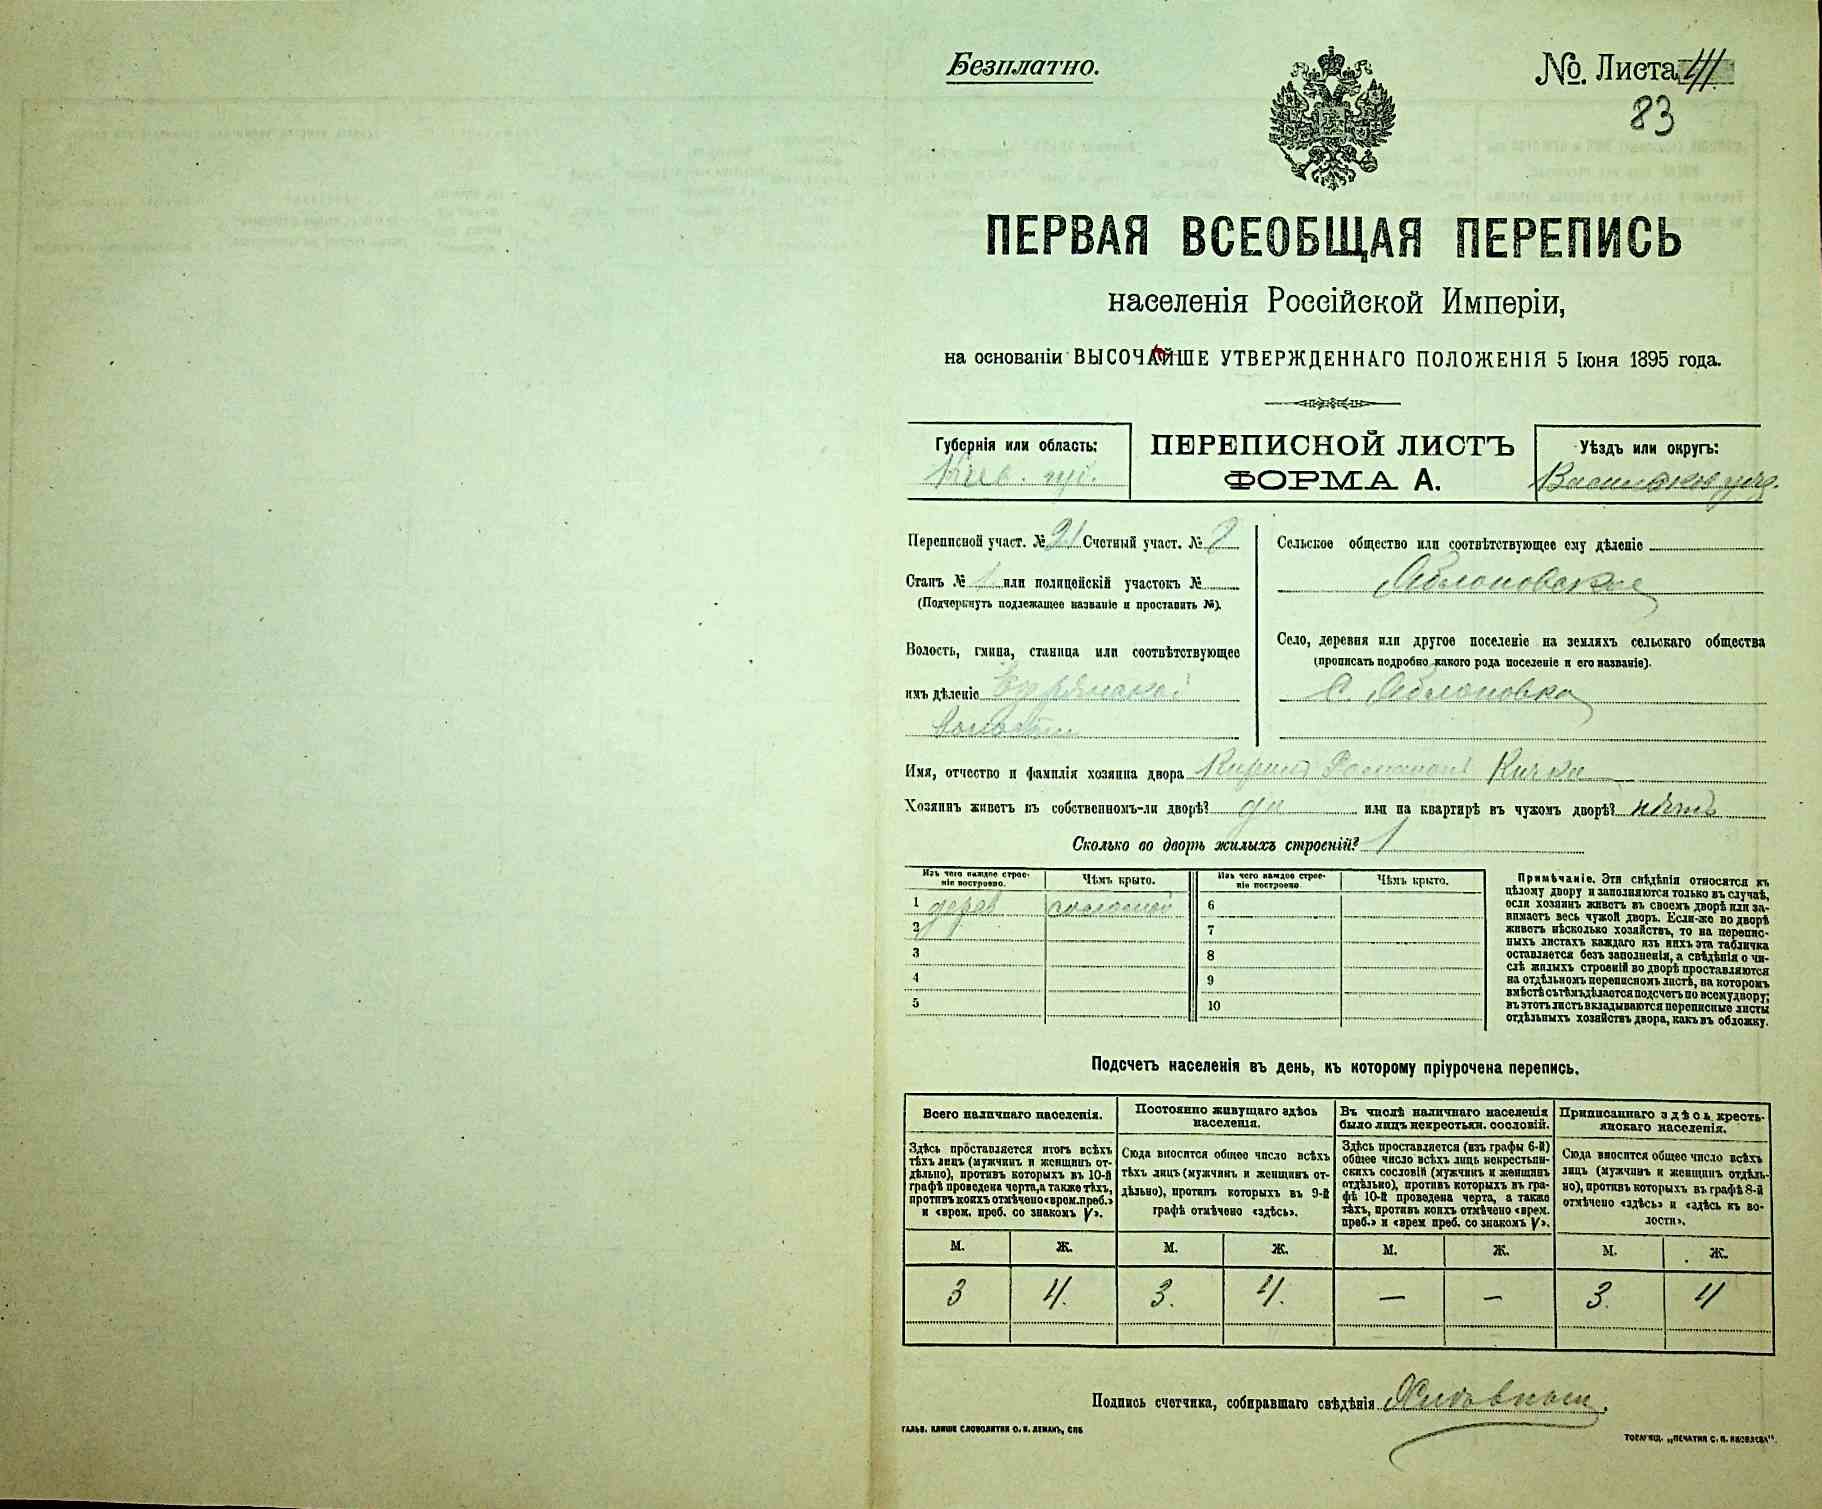 Безплатно.
№. Листа 41
83
ПЕРВАЯ ВСЕОБЩАЯ ПЕРЕПИСЬ
населенія Россійской Имперіи,
на основаніи ВЫСОЧАЙШЕ УТВЕРЖДЕННАГО ПОЛОЖЕНІЯ 5 Іюня 1895 года.
Губернія или область:
Кіев. губ.
ПЕРЕПИСНОЙ ЛИСТЪ
ФОРМА А.
Уѣздъ или округъ:
Васильков уѣз.
Переписной участ. № 21 Счетный участ. № 2
Станъ № 1 или полицейскій участокъ №
(Подчеркнуть подлежащее названіе и проставить №).
Волость, гмина, станица или соотвѣтствующее
имъ дѣленіе
волости
Сельское общество или соотвѣтствующее ему дѣленіе
Яблоновское
Село, деревня или другое поселеніе на земляхъ сельскаго общества
(прописать подробно какого рода поселеніе и его названіе).
С. Яблоновка
Имя, отчество и фамилія хозяина двора Кирилъ
Хозяинъ живетъ въ собственномъ-ли дворѣ? да или на квартирѣ въ чужомъ дворѣ? нѣтъ
Сколько во дворѣ жилыхъ строеній? 1
Изъ чего каждое строеніе построено. Чѣмъ крыто. Изъ чего каждое строеніе построено. Чѣмъ крыто.
1 дерев соломой 6
2 7
3 8
4 9
5 10
Примѣчаніе. Эти свѣдѣнія относятся къ
цѣлому двору и заполняются только въ случаѣ,
если хозяинъ живетъ въ своемъ дворѣ или за-
нимаетъ весь чужой дворъ. Если-же во дворѣ
живетъ нѣсколько хозяйствъ, то на перепис-
ныхъ листахъ каждаго изъ нихъ эта табличка
оставляется безъ заполненія, а свѣдѣнія о чи-
слѣ жилыхъ строеній во дворѣ проставляются
на отдѣльномъ переписномъ листѣ, на которомъ
вмѣстѣ съ тѣмъ дѣлается подсчетъ по всему двору;
въ этотъ листъ вкладываются переписные листы
отдѣльныхъ хозяйствъ двора, какъ въ обложку.
Подсчетъ населенія въ день, къ которому пріурочена перепись.
Всего наличнаго населенія.
Здѣсь проставляется итогъ всѣхъ
тѣхъ лицъ (мужчинъ и женщинъ от-
дѣльно), противъ которыхъ въ 10-й
графѣ проведена черта, а также тѣхъ,
противъ коихъ отмѣчено «врем. преб.»
и «врем. преб. со знакомъ V».
Постоянно живущаго здѣсь
населенія.
Сюда вносится общее число всѣхъ
тѣхъ лицъ (мужчинъ и женщинъ от-
дѣльно), противъ которыхъ въ 9-й
графѣ отмѣчено «здѣсь».
Въ числѣ наличнаго населенія
было лицъ некрестьян. сословій.
Здѣсь проставляется (изъ графы 6-й)
общее число всѣхъ лицъ некрестьян-
скихъ сословій (мужчинъ и женщинъ
отдѣльно), противъ которыхъ въ гра-
фѣ 10-й проведена черта, а также
тѣхъ, противъ коихъ отмѣчено «врем.
преб.» и «врем преб. со знакомъ V».
Приписаннаго здѣсь кресть-
янскаго населенія.
Сюда вносится общее число всѣхъ
лицъ (мужчинъ и женщинъ отдѣль-
но), противъ которыхъ въ графѣ 8-й
отмѣчено «здѣсь» и «здѣсь къ во-
лости».
М. Ж. М. Ж. М. Ж. М. Ж.
3 4. 3. 4. — — 3. 4
Подпись счетчика, собиравшаго свѣдѣнія
ГАЛЬВ. КЛИШЕ СЛОВОЛИТНИ О. И. ЛЕМАНЪ, СПБ
ТОВАРИЩ. „ПЕЧАТНЯ С. П. ЯКОВЛЕВА".